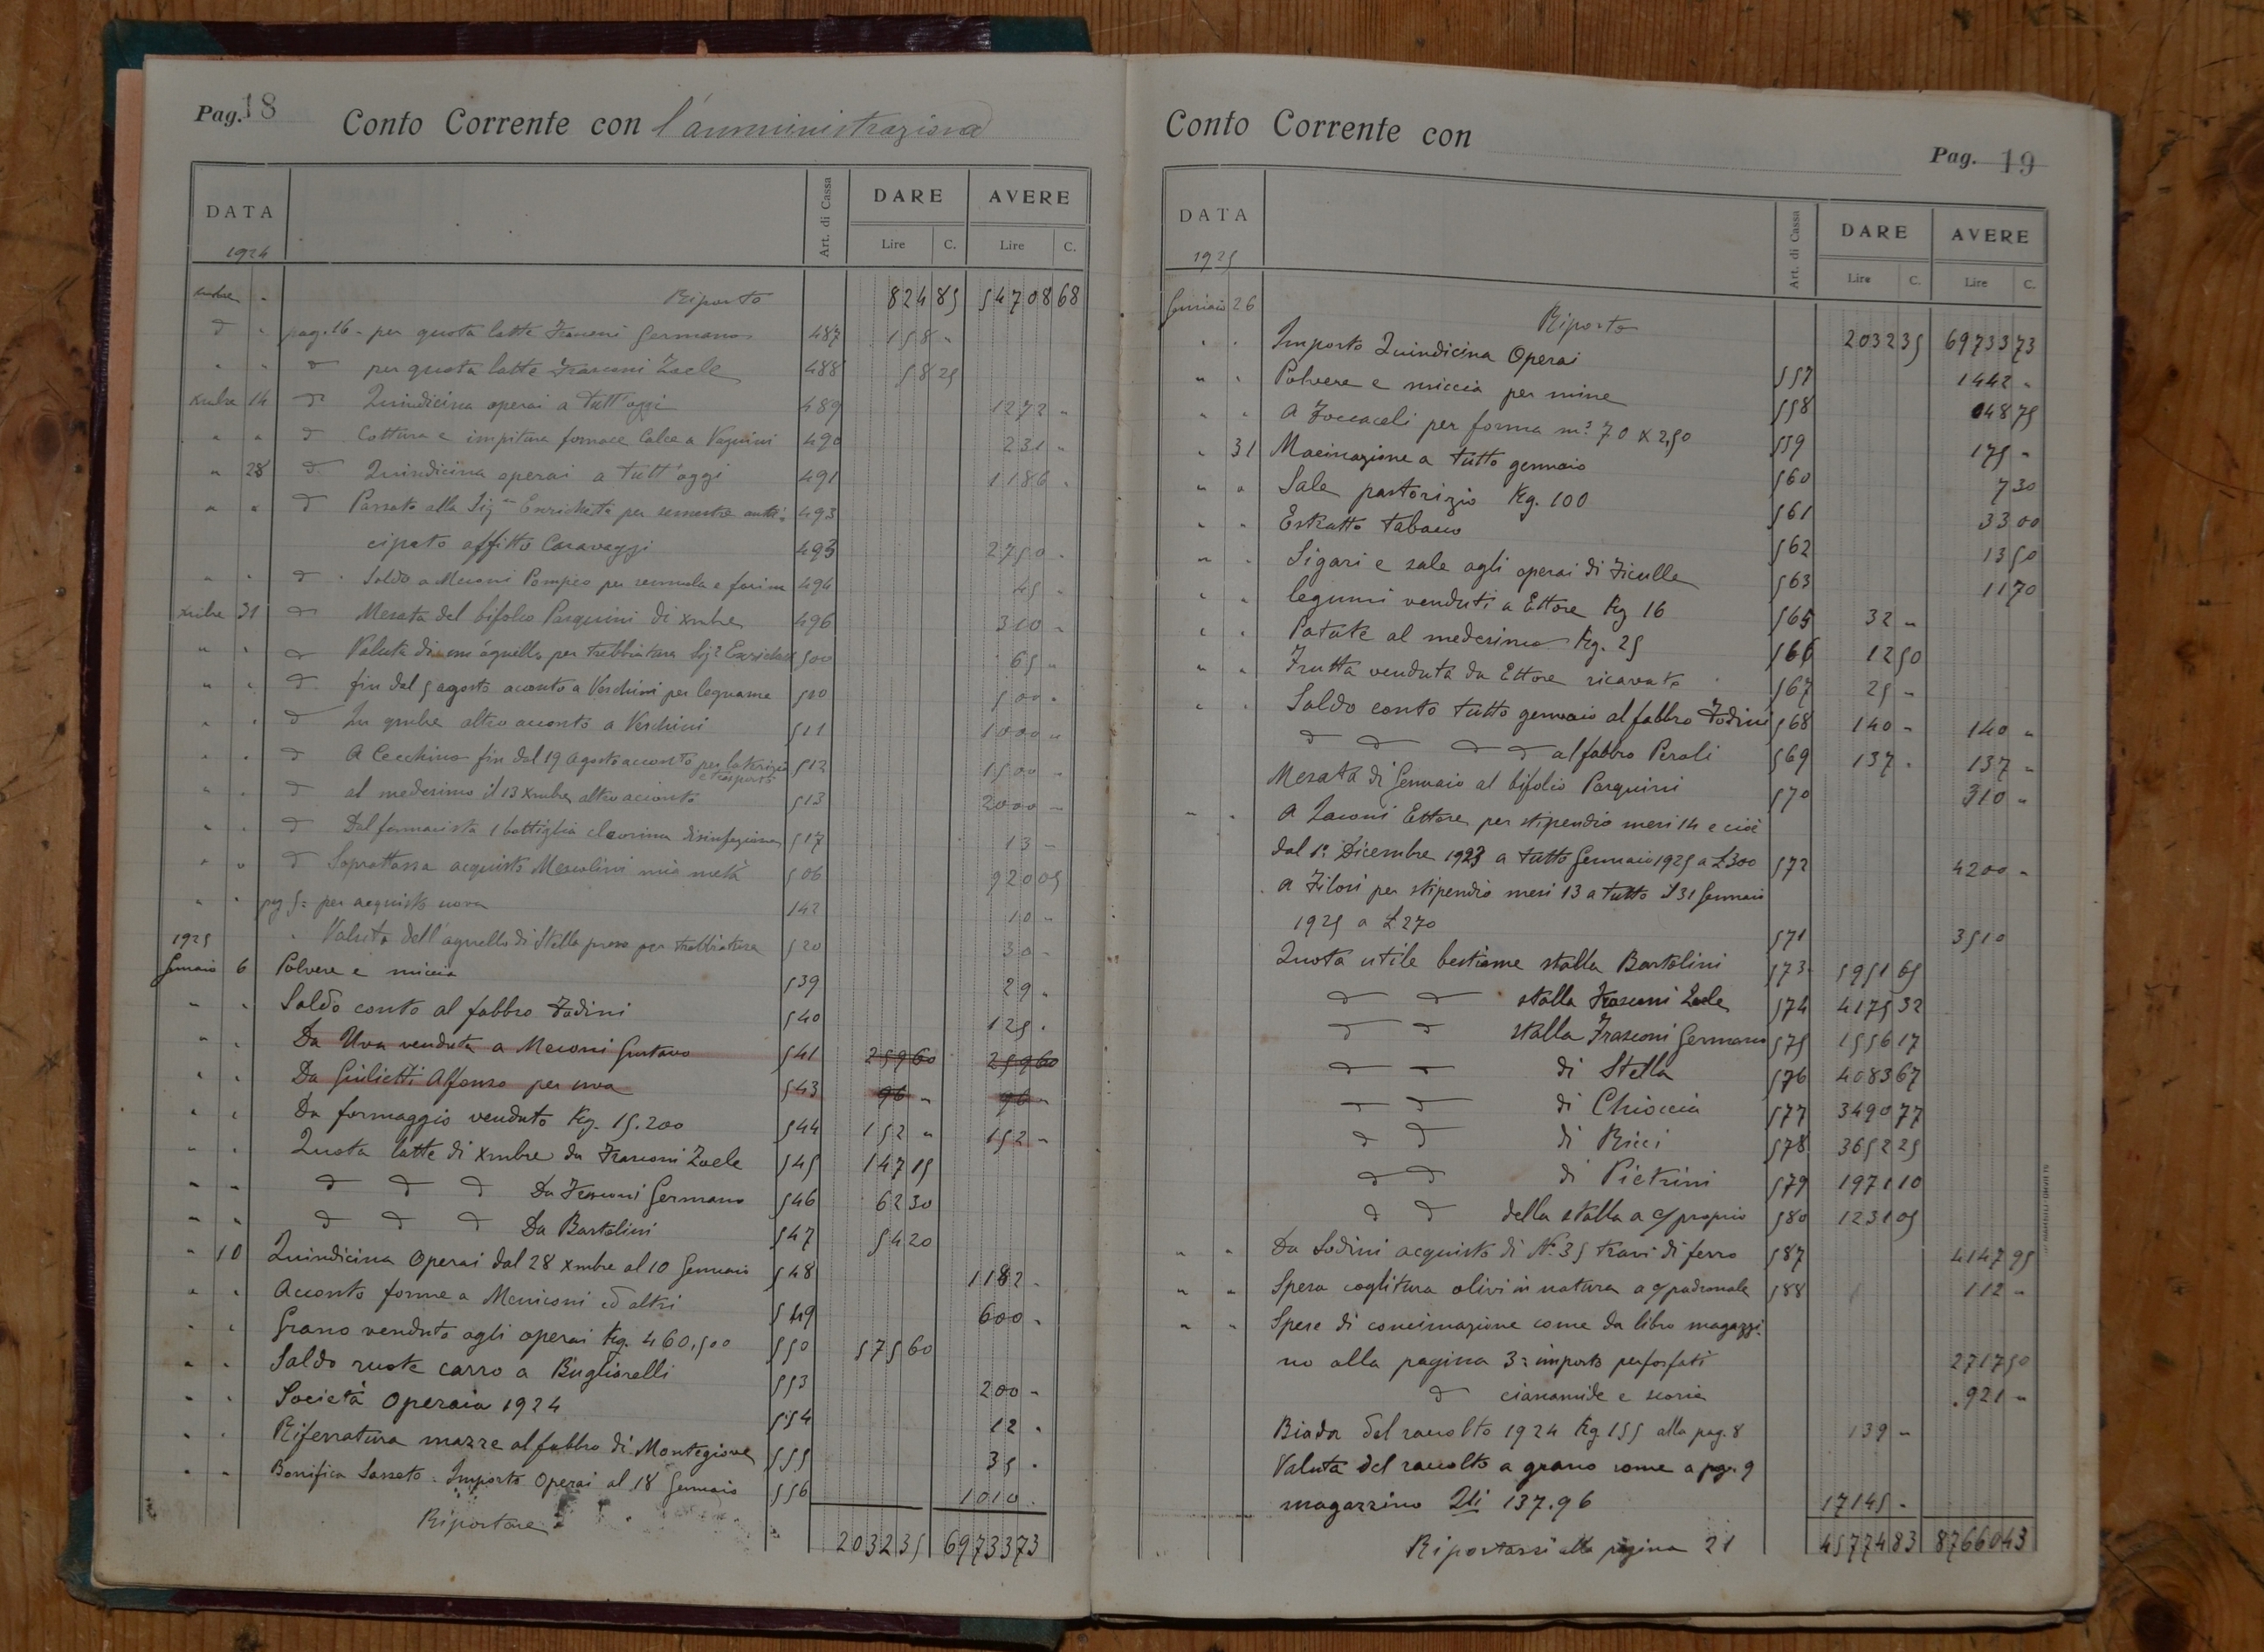 Pag. 18
Conto Corrente con l'amministrazione
DATA Art. di Cassa DARE AVERE
Lire C. Lire C.
1924
xmbre " Riporto 824 85 54708 68
d " pag. 16 - per quota latte Frasconi Germano 487 158 "
" " d per quota latte Frasconi Zaele 488 58 25
xmbre 14 d Quindicina operai a tutt'oggi 489 1272 "
" " d Cottura e impitura fornace Calce a Vagnini 490 231 "
" 28 d Quindicina operai a tutt'oggi 491 1186 "
" " d Passato alla Sig.ra Enrichetta per semestre anti- 493
cipato affitto Caravaggi 493 2750 "
" " d Saldo a Meconi Pompeo per semola e farina 494 45 "
xmbre 31 d Mesata del bifolco Pasquini di xmbre 496 310 "
" " d Valuta di un agnello per trebbiatura Sig.ra 500 65 "
" " d fin dal 5 agosto acconto a Veschini per legname 510 500 "
" " d In qmbre altro acconto a Veschini 511 1000 "
" " d A Cecchino fin dal 19 Agosto acconto per laterizi e trasporto 512 1500 "
" " d al medesimo il 13 xmbre altro acconto 513 2000 "
" " d Dal farmacista 1 bottiglia cleorina disinfezione 517 13 "
" " d Soprattassa acquisto Mescolini mia metà 506 920 05
" " pag 5: per acquisto uova 142 10 "
1925 " Valuta dell'agnello di Stella preso per trebbiatura 520 30 "
Gennaio 6 Polvere e miccia 539 29 "
" " Saldo conto al fabbro Fodini 540 125 "
" " Da Uva venduta a Meconi Gustavo 541 259 60 259 60
" " Da Giulietti Alfonso per uva 543 96 " 96 "
" " Da formaggio venduto Kg. 15.200 544 152 " 152 "
" " Quota latte di xmbre da Frasconi Zaele 545 147 15
" " d d d Da Frasconi Germano 546 62 30
" " d d d Da Bartolini 547 54 20
" 10 Quindicina Operai dal 28 xmbre al 10 Gennaio 548 1182 "
" " Acconto forme a Meniconi ed altri 549 600 "
" " Grano venduto agli operai Kg. 460.500 550 575 60
" " Saldo ruote carro a Bugliarelli 553 200 "
" " Società Operaia 1924 554 12 "
" " Riferratura mazze al fabbro di Montegiove 555 35 "
" " Bonifica Sasseto. Importo Operai al 18 Gennaio 556 1010 "
Riportare 2032 35 69733 73
Conto Corrente con
Pag. 19
DATA Art. di Cassa DARE AVERE
Lire C. Lire C.
1925
Gennaio 26 Riporto 2032 35 69733 73
" " Importo Quindicina Operai 557 1442 "
" " Polvere e miccia per mine 558 48 75
" " A Foccaceli per forma m.³ 70 x 2,50 559 175 "
" 31 Macinazione a tutto gennaio 560 7 30
" " Sale pastorizio Kg. 100 561 33 00
" " Estratto tabacco 562 13 50
" " Sigari e sale agli operai di Ficulle 563 11 70
" " legumi venduti a Ettore Kg 16 565 32 "
" " Patate al medesimo Kg. 25 566 12 50
" " Frutta venduta da Ettore ricavato 567 25 "
" " Saldo conto tutto gennaio al fabbro Fodini 568 140 " 140 "
d d d d al fabbro Peroli 569 137 " 137 "
Mesata di Gennaio al bifolco Pasquini 570 310 "
" " A Zaconi Ettore per stipendio mesi 14 e cioè
dal 1º Dicembre 1923 a tutto Gennaio 1925 a £ 300 572 4200 "
A Filosi per stipendio mesi 13 a tutto il 31 Gennaio
1925 a £ 270 571 3510
Quota utile bestiame stalla Bartolini 573 5951 65
d d stalla Frasconi Zaele 574 4175 32
d d stalla Frasconi Germano 575 1556 17
d d di Stella 576 4083 67
d d di Chioccia 577 3490 77
d d di Ricci 578 3652 25
d d di Pietrini 579 1971 10
d d della stalla a c/ proprio 580 1231 05
" " Da Sodini acquisto di N.º 35 travi di ferro 587 4147 95
" " Spesa coglitura olivi in natura a c/ padronale 588 112 "
" " Spese di concimazione come da libro magazzi-
no alla pagina 3: importo perfosfati 2717 50
d cianamide e scoria 921 "
Biada del raccolto 1924 Kg. 155 alla pag. 8 139 "
Valuta del raccolto a grano come a pag. 9
magazzino Qli 137.96 17145 "
Riportarsi alla pagina 21 45774 83 87660 43